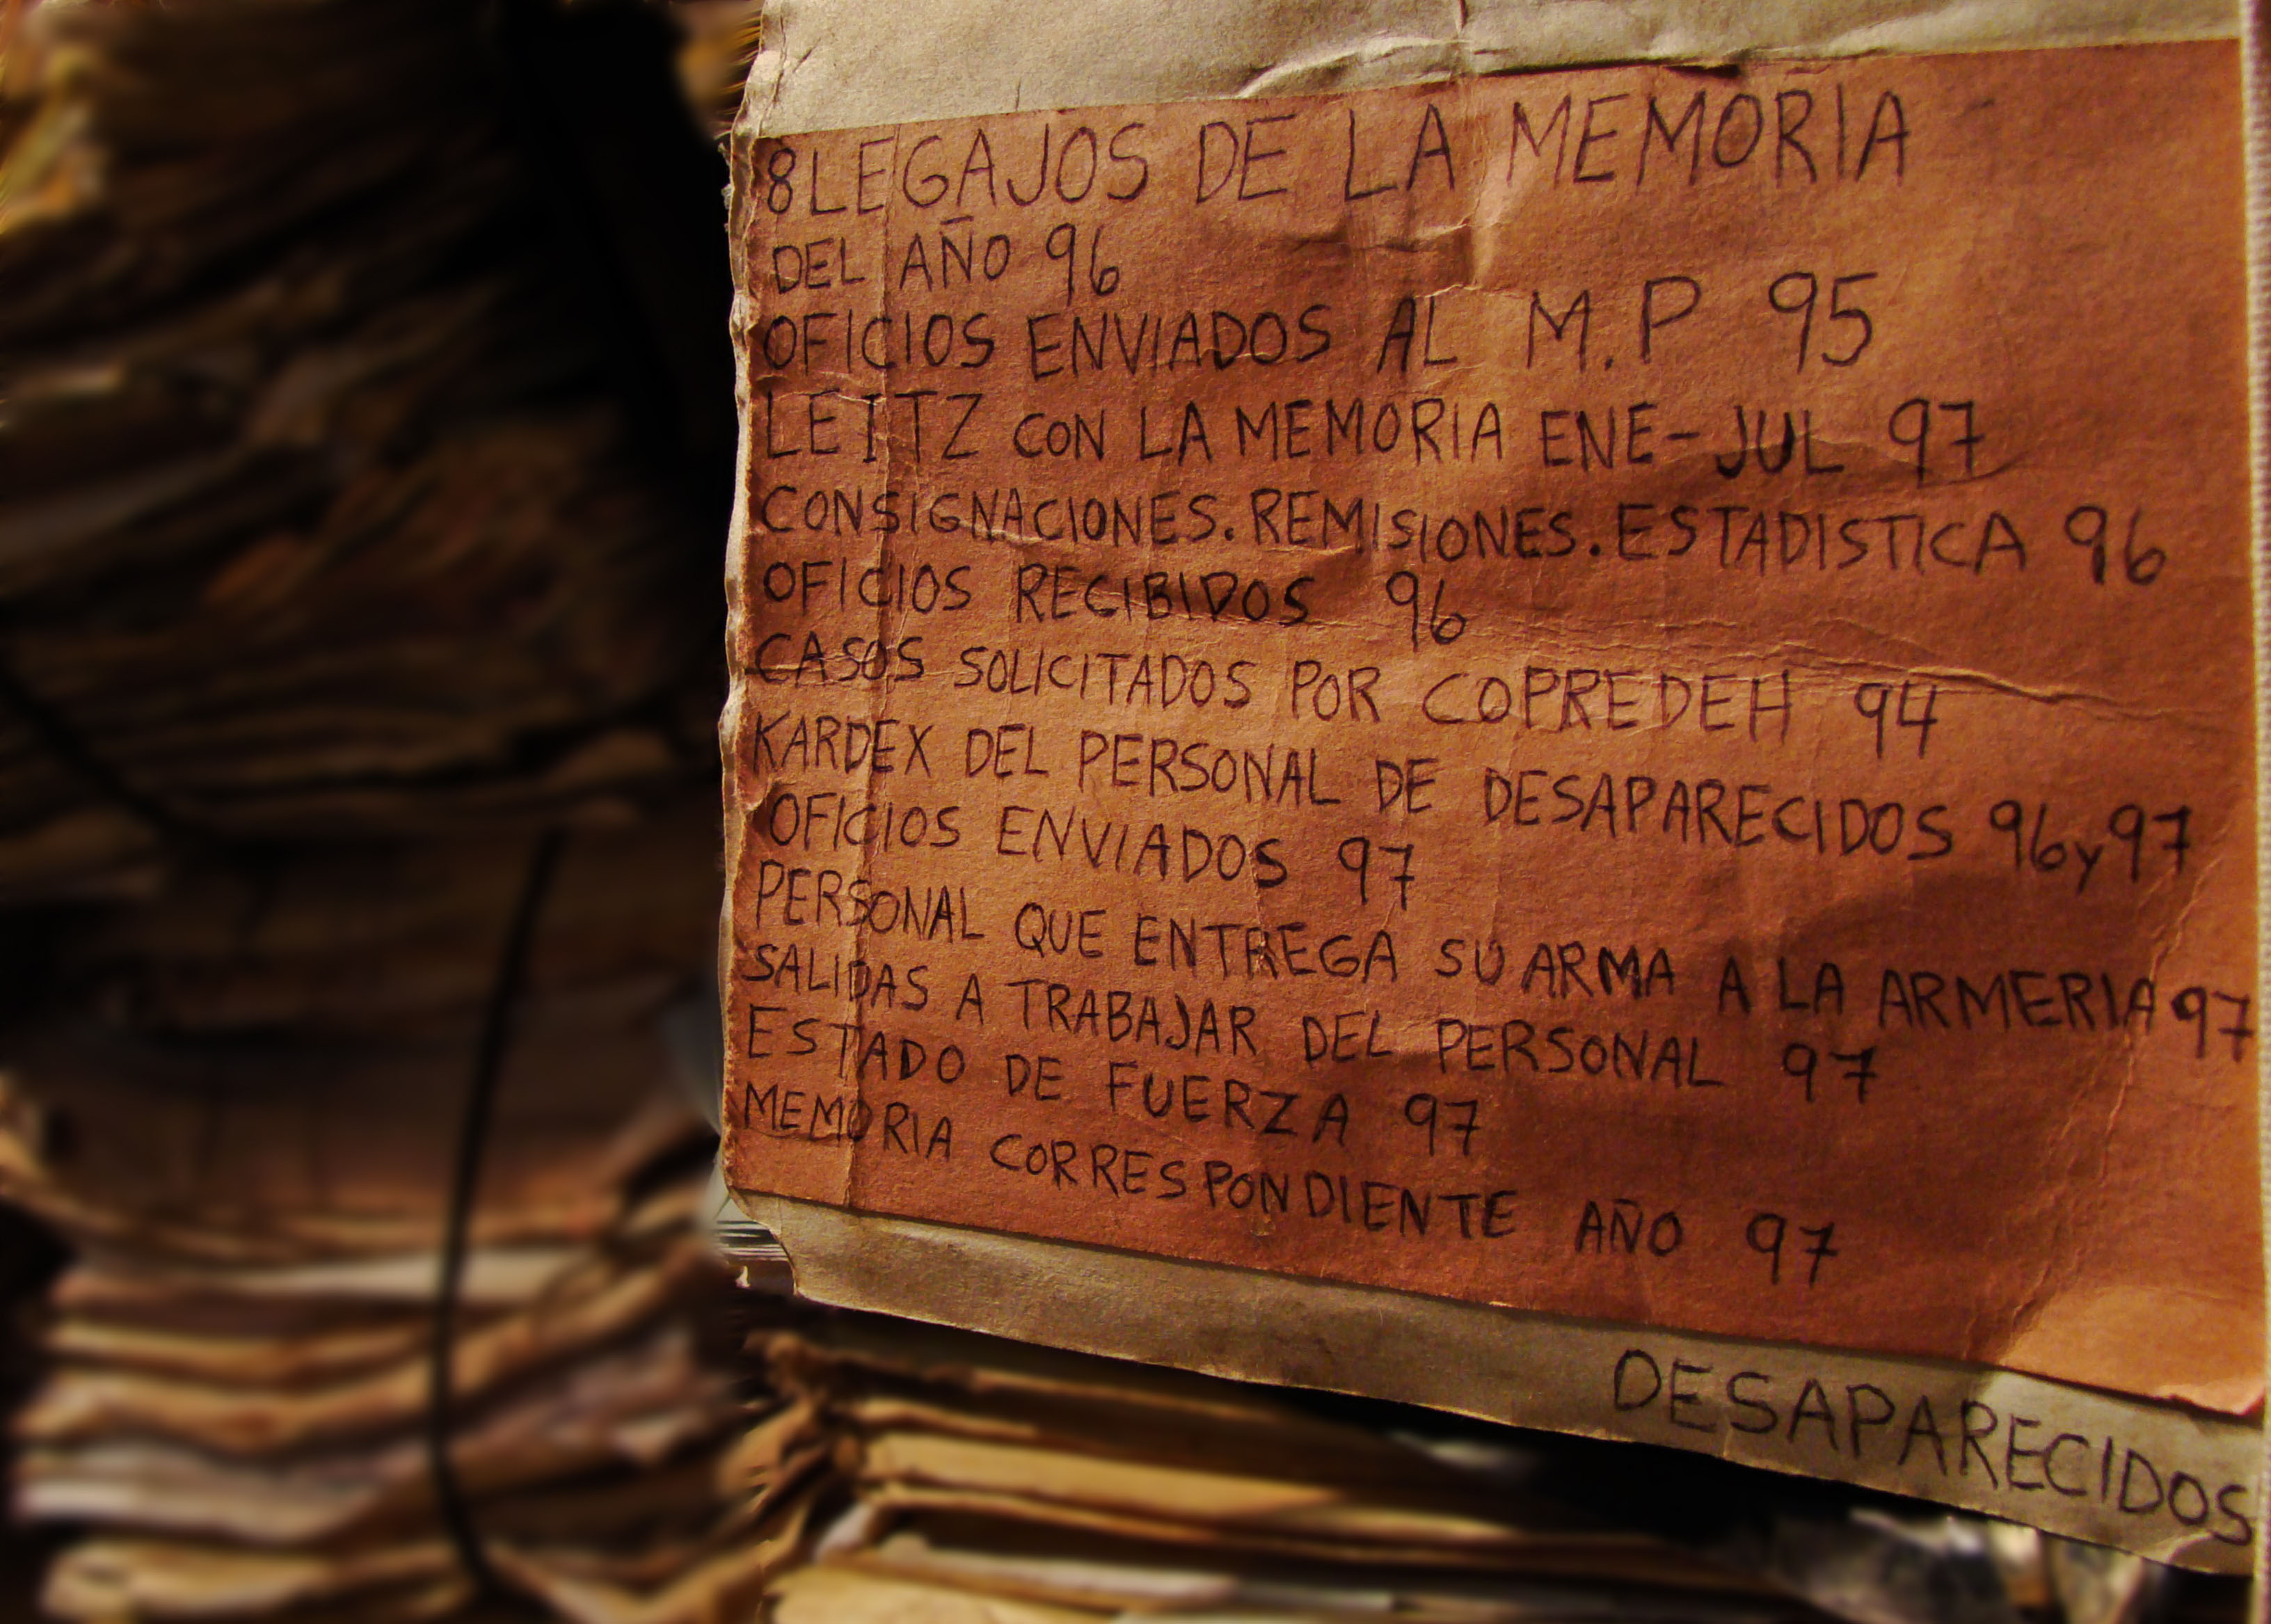 8 LEGAJOS DE LA MEMORIA
DEL AÑO 96
OFICIOS ENVIADOS AL M.P 95
LEITZ CON LA MEMORIA ENE-JUL 97
CONSIGNACIONES.REMISIONES.ESTADISTICA 96
OFICIOS RECIBIDOS 96
CASOS SOLICITADOS POR COPREDEH 94
KARDEX DEL PERSONAL DE DESAPARECIDOS 96y97
OFICIOS ENVIADOS 97
PERSONAL QUE ENTREGA SU ARMA A LA ARMERIA 97
SALIDAS A TRABAJAR DEL PERSONAL 97
ESTADO DE FUERZA 97
MEMORIA CORRESPONDIENTE AÑO 97
DESAPARECIDOS